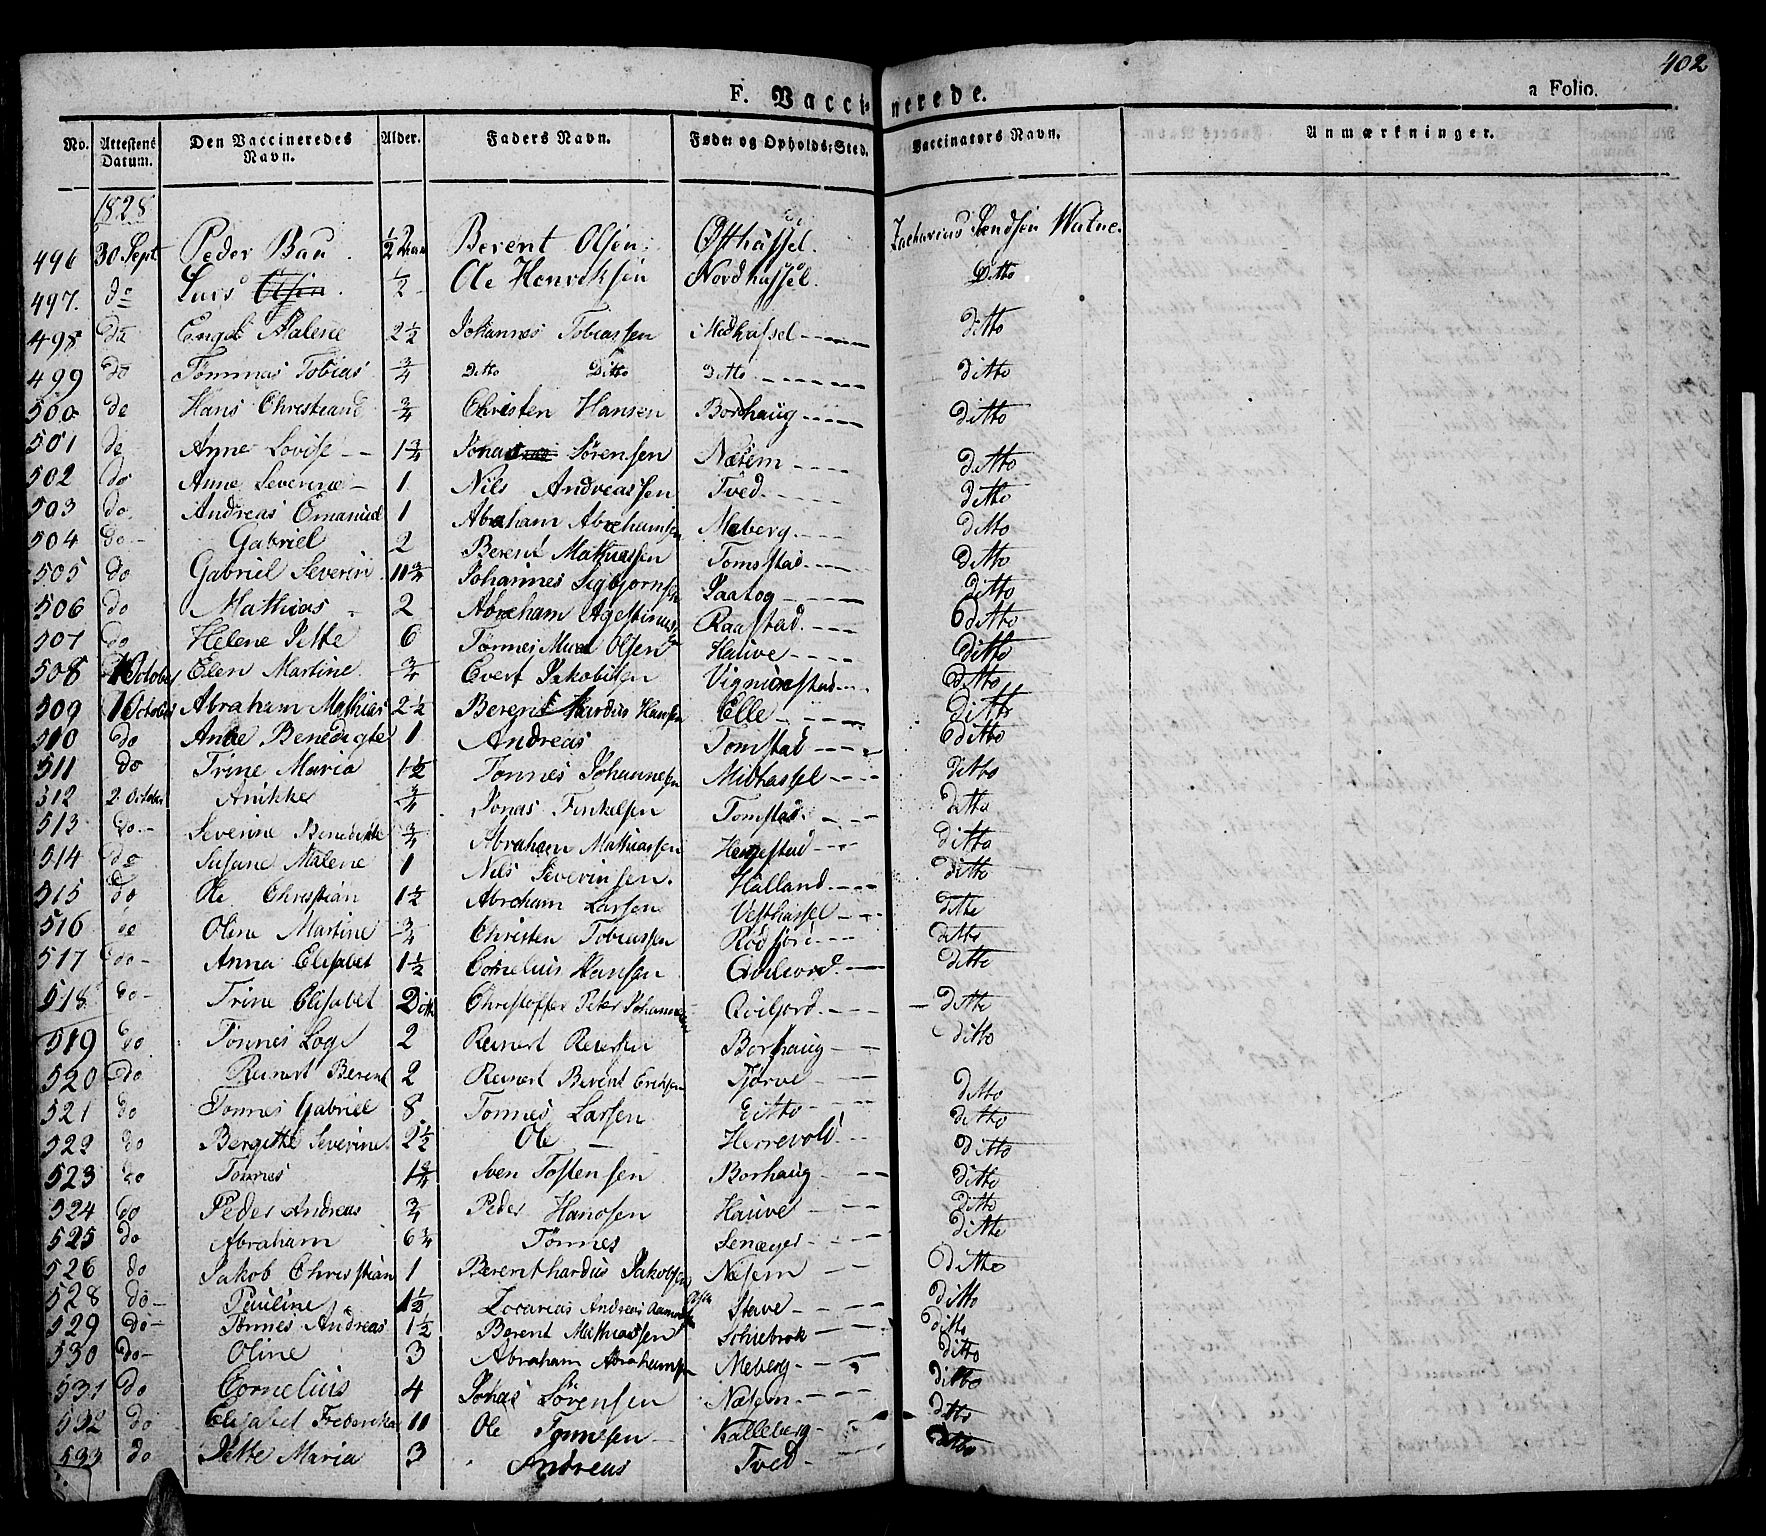 402
F. Vaccinerede. a Folio.
No. Attestens Datum. Den Vaccineredes Navn. Alder. Faders Navn. Føde og Opholds-Sted. Vaccinators Navn. Anmærkninger.
1828
496 30 Sept Peder Bau ½ Berent Olsen Østhassel. Zacharias
497. do Lars Olsen ½ Ole Henriksen Nordhassel. Ditto
498 do Engel Malene 2½ Johannes Tobiassen Midhassel ditto
499 do Tømmas Tobias ¾ Ditto Ditto Ditto ditto
500 do Hans Christiand ¾ Christen Hansen Borhaug ditto
501 do Anne Lovise 1¾ Sørensen Næsem ditto
502 do Anne Severine 1 Nils Andreassen Tved ditto
503 do Andreas Emanuel 1 Abraham Abrahamsen Meberg ditto
504 do Gabriel 2 Berent Mathiassen Tomstad ditto
505 do Gabriel Severin Johannes Sigbjornsen ditto
506 do Mathias 2 Abraham Raastad ditto
507 do Helene Jette 6 Tønnes Olsen Hauve ditto
508 1 October Elen Martine ¾ Evert Jakobsen Vigmonstad ditto
509 1 October Abraham Mathias 2½ Berent Hansen Elle ditto
510 do Anne Benedigte 1 Andreas Tomstad ditto
511 do Trine Maria 1½ Tønnes Johannesen Midhassel ditto
512 2 October Anikke ¾ Jonas Finkelsen Tomstad ditto
513 do Severine Benedikte ¾ Abraham Mathiassen ditto
514 do Susane Malene 1 Nils Severinsen. Halland ditto
515 do Ole Christian 1½ Abraham Larsen Vesthassel ditto
516 do Oline Martine ¾ Christen Tobiassen ditto
517 do Anna Elisabet 1½ Cornelius Hansen ditto
518 do Trine Elisabet Ditto Christoffer Peter Qviljord. ditto
519 do Tønnes Log 2 Reinert Reiersen Borhaug ditto
520 do Reinert Berent 2 Reinert Berent Eriksen Tjørve ditto
521 do Tønnes Gabriel 8 Tønnes Larsen Ditto ditto
522 do Bergitte Severine 2½ Ole Herrevold ditto
523 do Tønnes 1¾ Sven Tostensen Borhaug ditto
524 do Peder Andreas ¾ Peder Hansen Hauve ditto
525 do Abraham 6¾ Tønnes ditto
526 do Jakob Christian 1 Berenthardus Jakobsen Næsem ditto
528 do Pauline 1½ Zacarias Andreas Stave ditto
529 do Tønnes Andreas 1½ Berent Mathiassen ditto
530 do Oline 3 Abraham Abrahamsen Meberg ditto
531 do Cornelius 4 Jonas Sørensen Næsem ditto
532 do Elisabet Frederikke 11 Ole Tønnesen Kalleberg ditto
533 do Jette Maria 3 Andreas Tved ditto